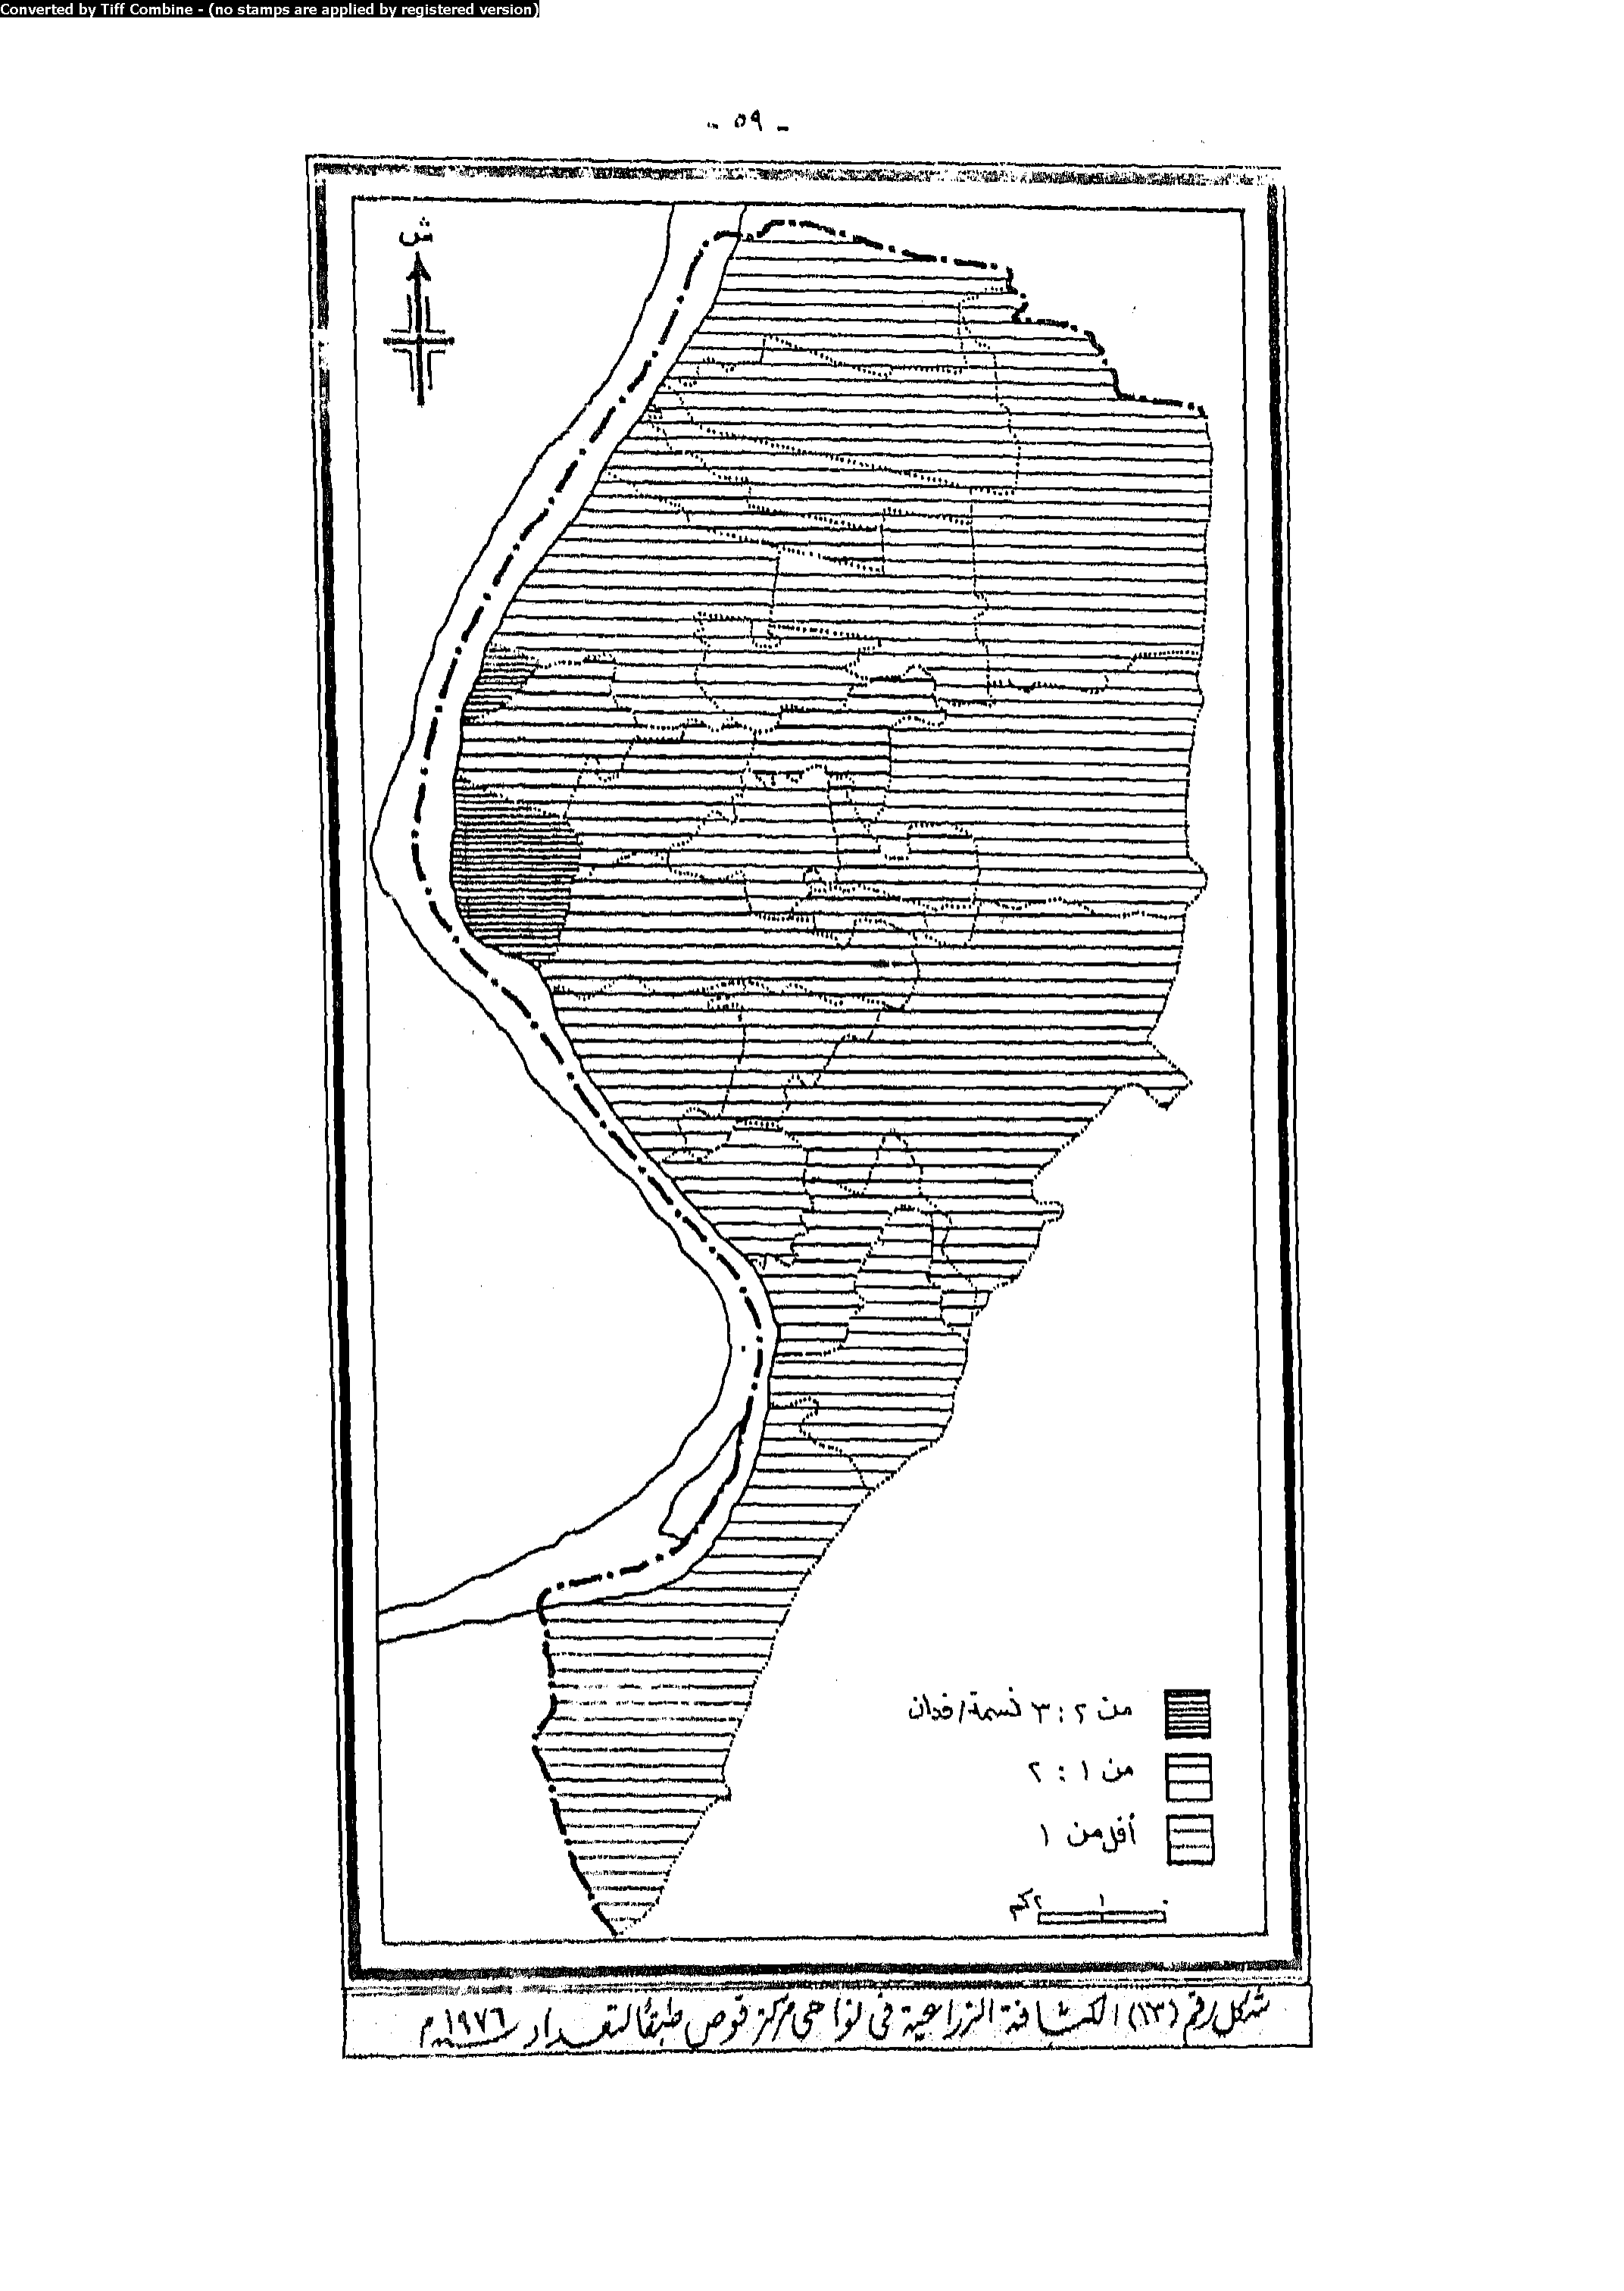 Converted by Tiff Combine - (no stamps are applied by registered version)
- ٥٩ -
ش
من ٢ : ٣ نسمة/فدان
من ١ : ٢
أقل من ١
٠ ١ ٢ كم
شكل رقم (١٣) الكثافة الزراعية فى نواحى مركز قوص طبقًا لتعداد سنة ١٩٧٦م